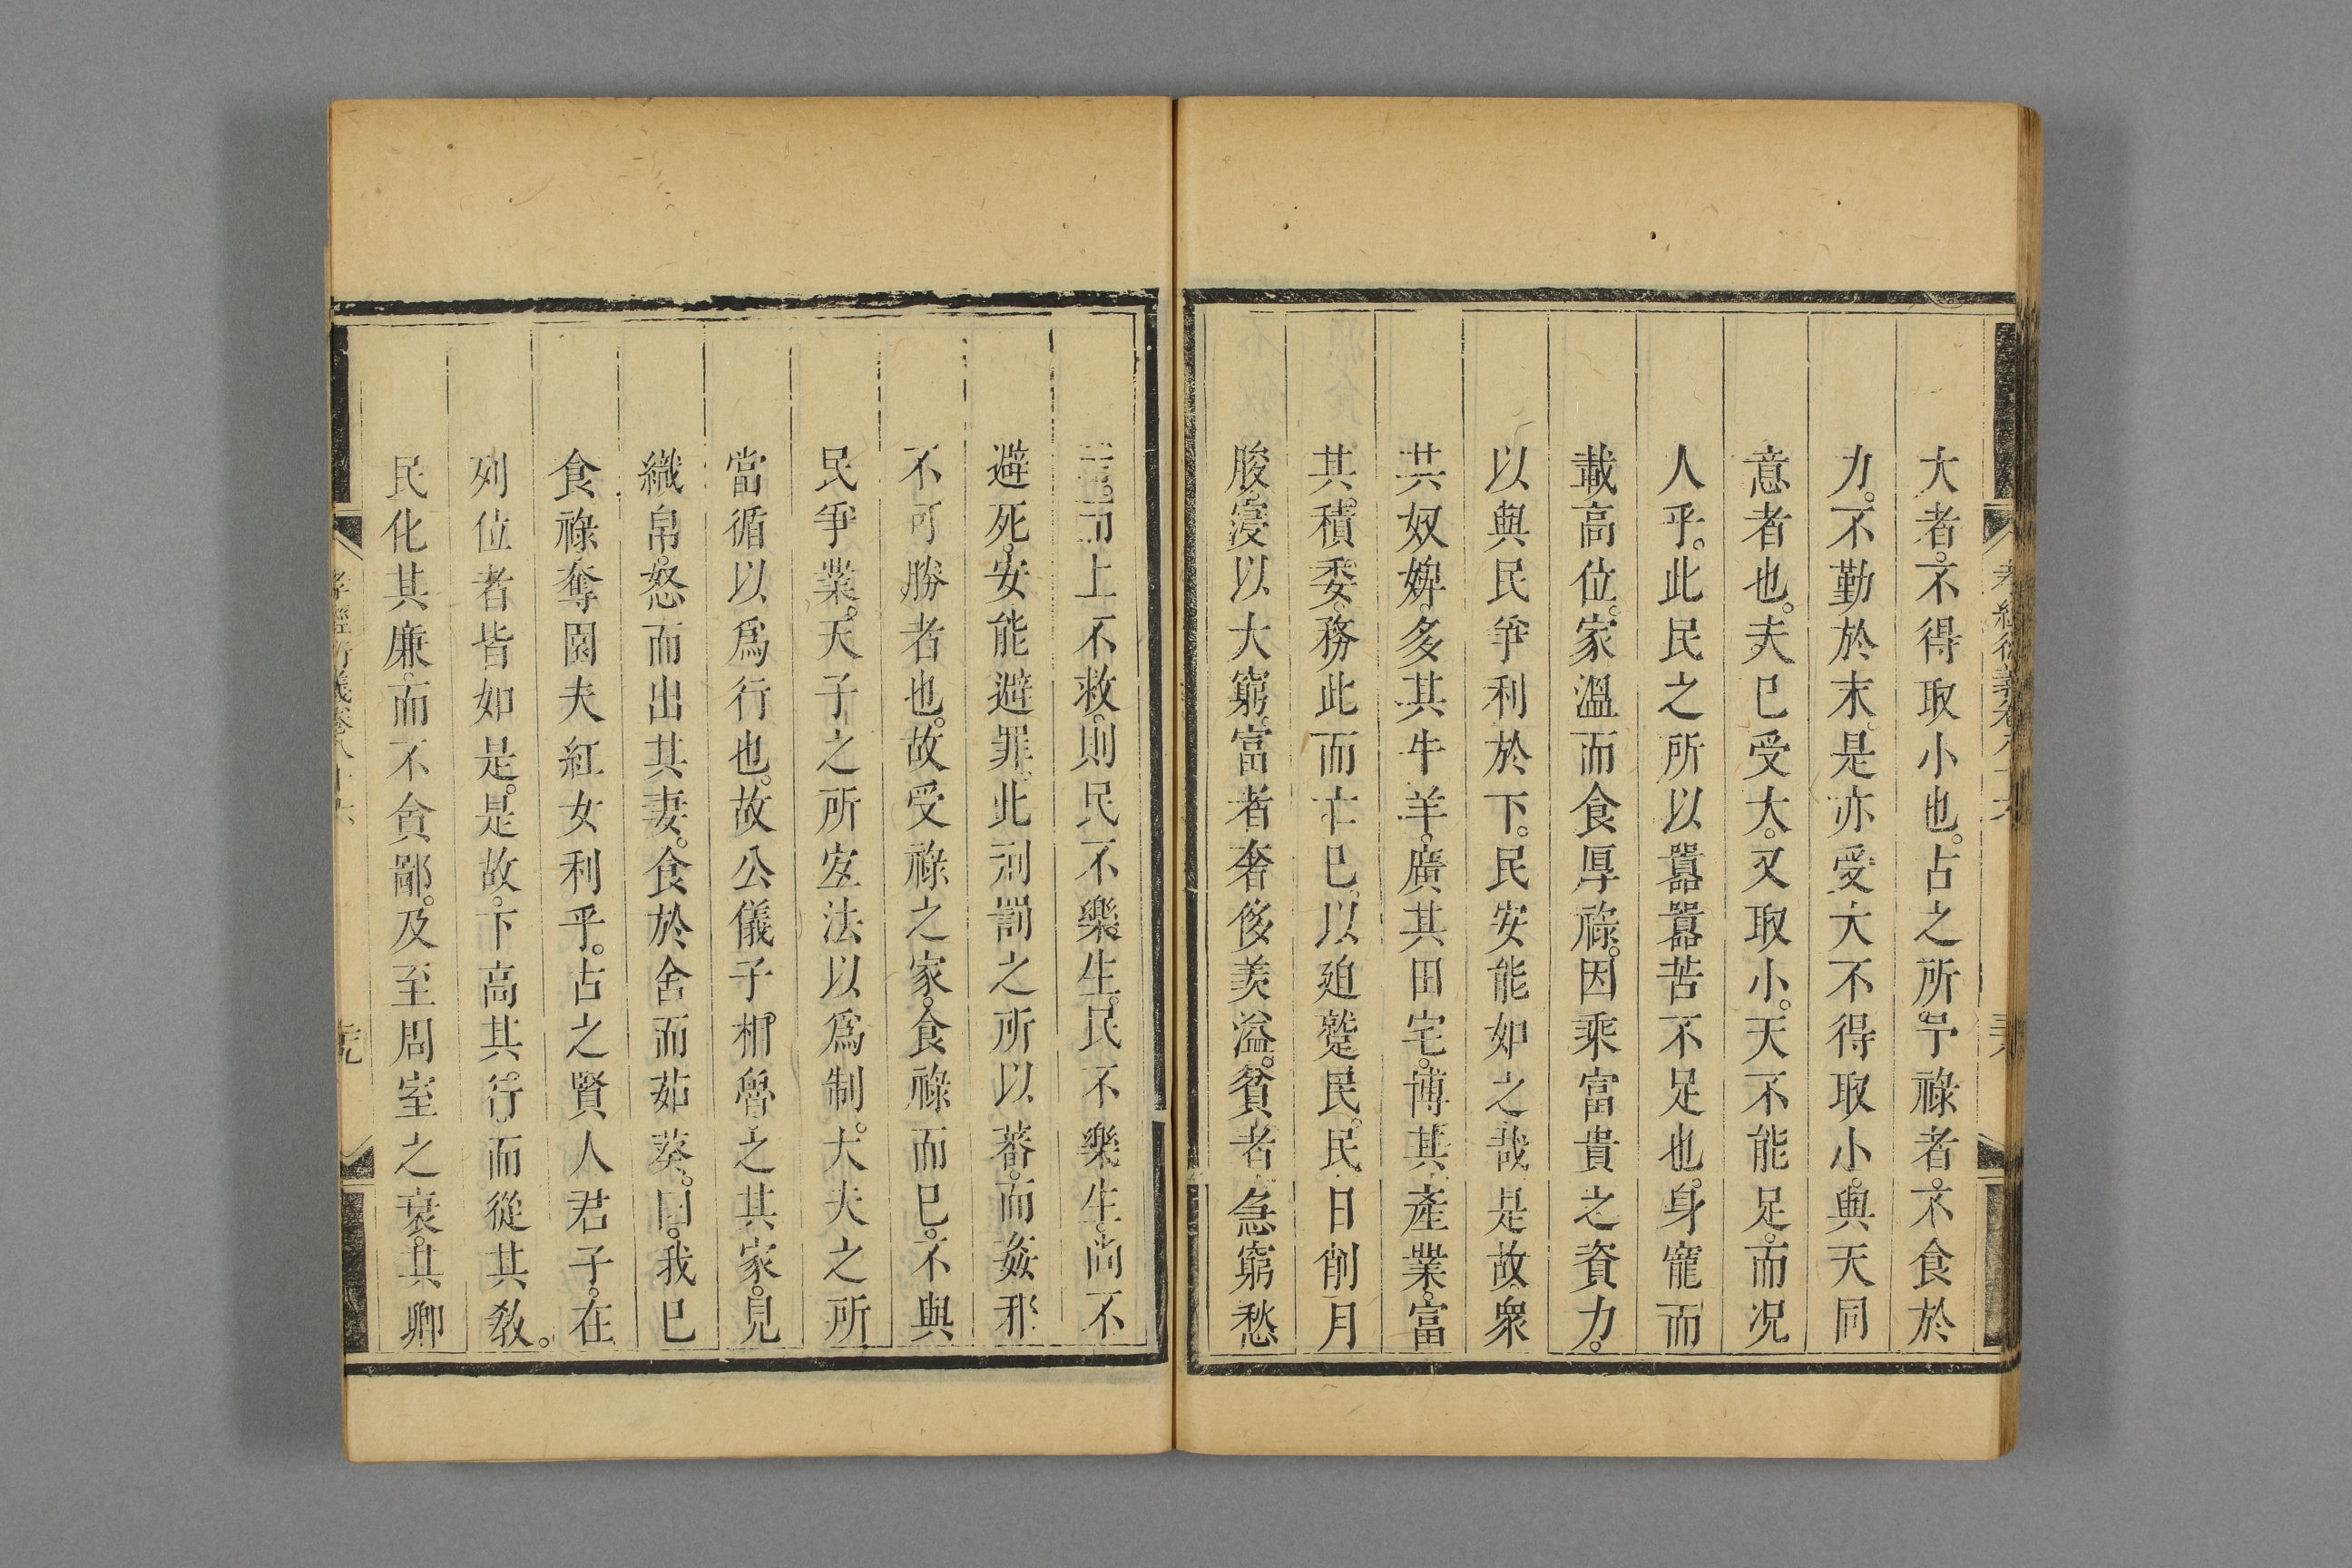 大者。不得取小也。古之所。予祿者。不食於
力。不勤於末。是亦受大不得取小。與天同
意者也。夫已受大。又取小。天不能足。而况
人乎。此民之所以囂囂苦不足也。身寵而
載高位。家溫而食厚祿。因乘富貴之資力。
以與民爭利於下。民安能如之哉是故衆
其奴婢。多其牛羊。廣其田宅。博其產業。富
其。積委。務此而亡已。以廹蹵民。民日削月
朘。寖以大窮。富者奢侈羨溢。貧者急窮愁
而上不救。則民不樂生。民不樂生。尚不
避死。安能避罪。此刑罰之所以蕃。而姦邪
不可勝者也。故受祿之家。食祿而已。不與
民爭業。天子之所宜法以爲制。大夫之所
當循以爲行也。故公儀子相魯。之其家。見
織帛。怒而出其妻。食於舍而茹葵。曰。我已
食祿。奪園夫紅女利乎。古之賢人君子。在
列位者皆如是。是故。下高其行。而從其敎。
民化其廉。而不貪鄙。及至周室之衰。其卿